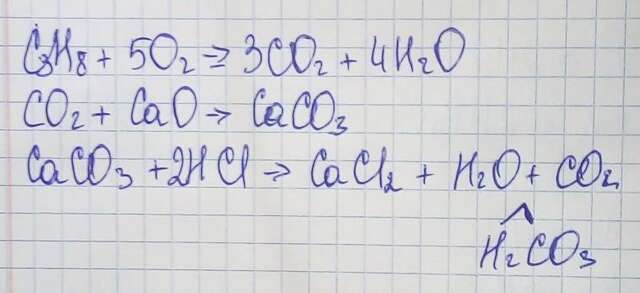 C₃H₈ + 5O₂ ⇒ 3CO₂ + 4H₂O
CO₂ + CaO → CaCO₃
CaCO₃ + 2HCl → CaCl₂ + H₂O + CO₂
H₂CO₃